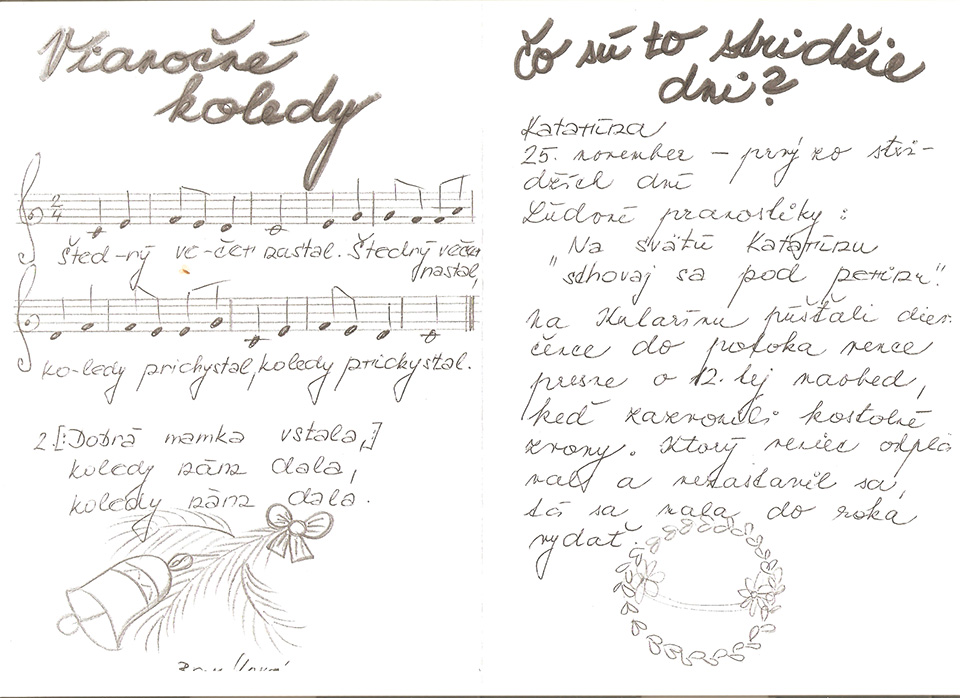 Vianočné
koledy
2
4
Šted-ný ve-čer nastal. Štedný večer
nastal,
ko-ledy prichystal, koledy prichystal.
2. [:Dobrá mamka vstala,]
koledy nám dala,
koledy nám dala.
Čo sú to stridžie
dni?
Katarína
25. november – prvý zo stri-
džích dní
Ľudové pranostiky:
"Na svätú Katarínu
"schovaj sa pod perinu."
Na Katarínu púšťali diev-
čence do potoka vence
presne o 12. tej naobed,
keď zazvonili kostolné
zvony. Ktorý veniec odplá-
val a nezastavil sa,
tá sa mala do roka
vydať.